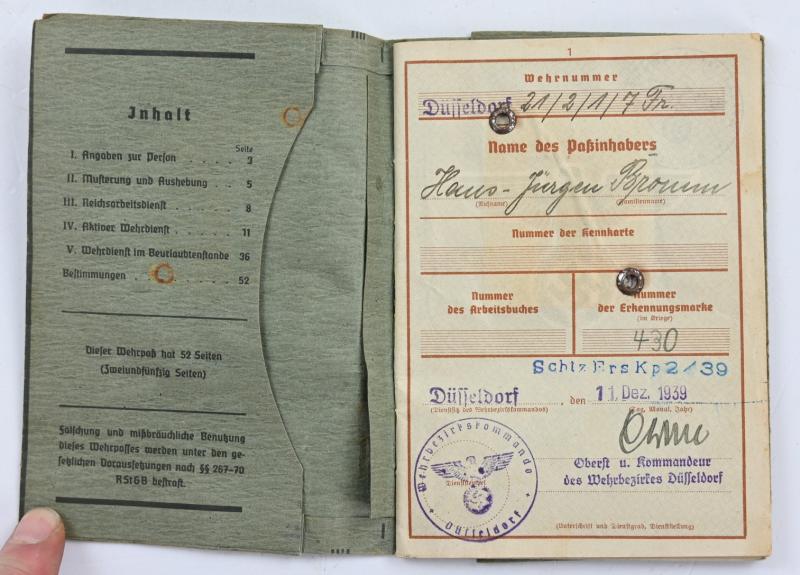 Inhalt
Seite
I. Angaben zur Person . . . . . 3
II. Musterung und Aushebung . . 5
III. Reichsarbeitsdienst . . . . . 8
IV. Aktiver Wehrdienst . . . . . 11
V. Wehrdienst im Beurlaubtenstande 36
Bestimmungen . . . . . 52
Dieser Wehrpaß hat 52 Seiten
(Zweiundfünfzig Seiten)
Fälschung und mißbräuchliche Benutzung
dieses Wehrpasses werden unter den ge-
setzlichen Voraussetzungen nach §§ 267-70
RStGB bestraft.
1
Wehrnummer
Düsseldorf 21/2/1/7 Fr.
Name des Paßinhabers
Hans-Jürgen Bromm
(Rufname) (Familienname)
Nummer der Kennkarte
Nummer
des Arbeitsbuches
Nummer
der Erkennungsmarke
(im Kriege)
430
Schtz Ers Kp 2/39
Düsseldorf, den 11. Dez. 1939
(Dienstsitz des Wehrbezirkskommandos) (Tag, Monat, Jahr)
Wehrbezirkskommando
Düsseldorf
Oberst u. Kommandeur
des Wehrbezirkes Düsseldorf
(Unterschrift und Dienstgrad, Dienststellung)